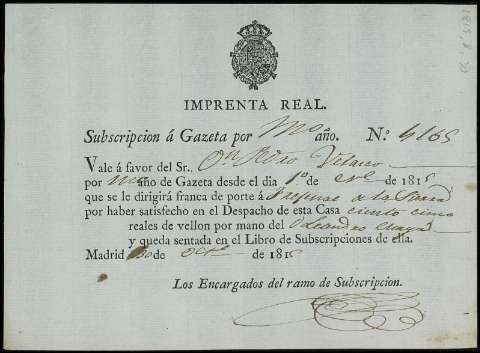 IMPRENTA REAL.
Subscripcion á Gazeta por Mo año. N.º 4165
Vale á favor del Sr. Dn Pedro Velasco
por año de Gazeta desde el dia 1º de 181
que se le dirigirá franca de porte á de la
por haber satisfecho en el Despacho de esta Casa ciento cinco
reales de vellon por mano del
y queda sentada en el Libro de Subscripciones de ella.
Madrid 30 de de 181
Los Encargados del ramo de Subscripcion.